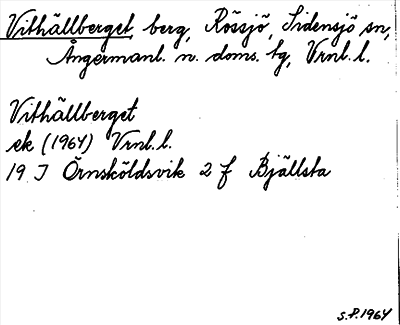 Vithällberget, berg, Rössjö, Sidensjö sn,
Ångermanl. n. doms. tg, Vrnl. l.
Vithällberget
ek (1964) Vrnl. l.
19 J Örnsköldsvik 2 f Bjällsta
S.P. 1964